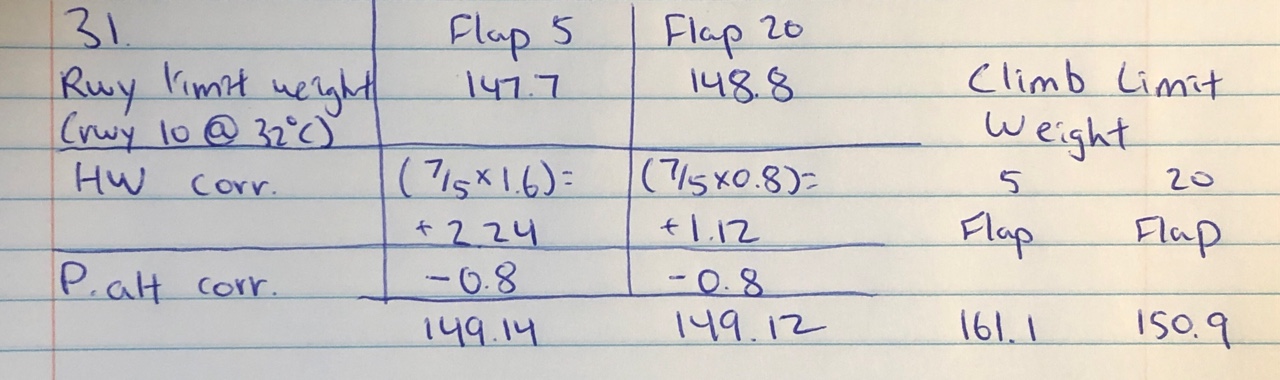 31. Flap 5 Flap 20
Rwy limit weight 147.7 148.8 Climb Limit
(rwy 10 @ 32°C) Weight
HW corr. (7/5×1.6)= (7/5×0.8)= 5 20
+2.24 +1.12 Flap Flap
P.alt corr. -0.8 -0.8
149.14 149.12 161.1 150.9